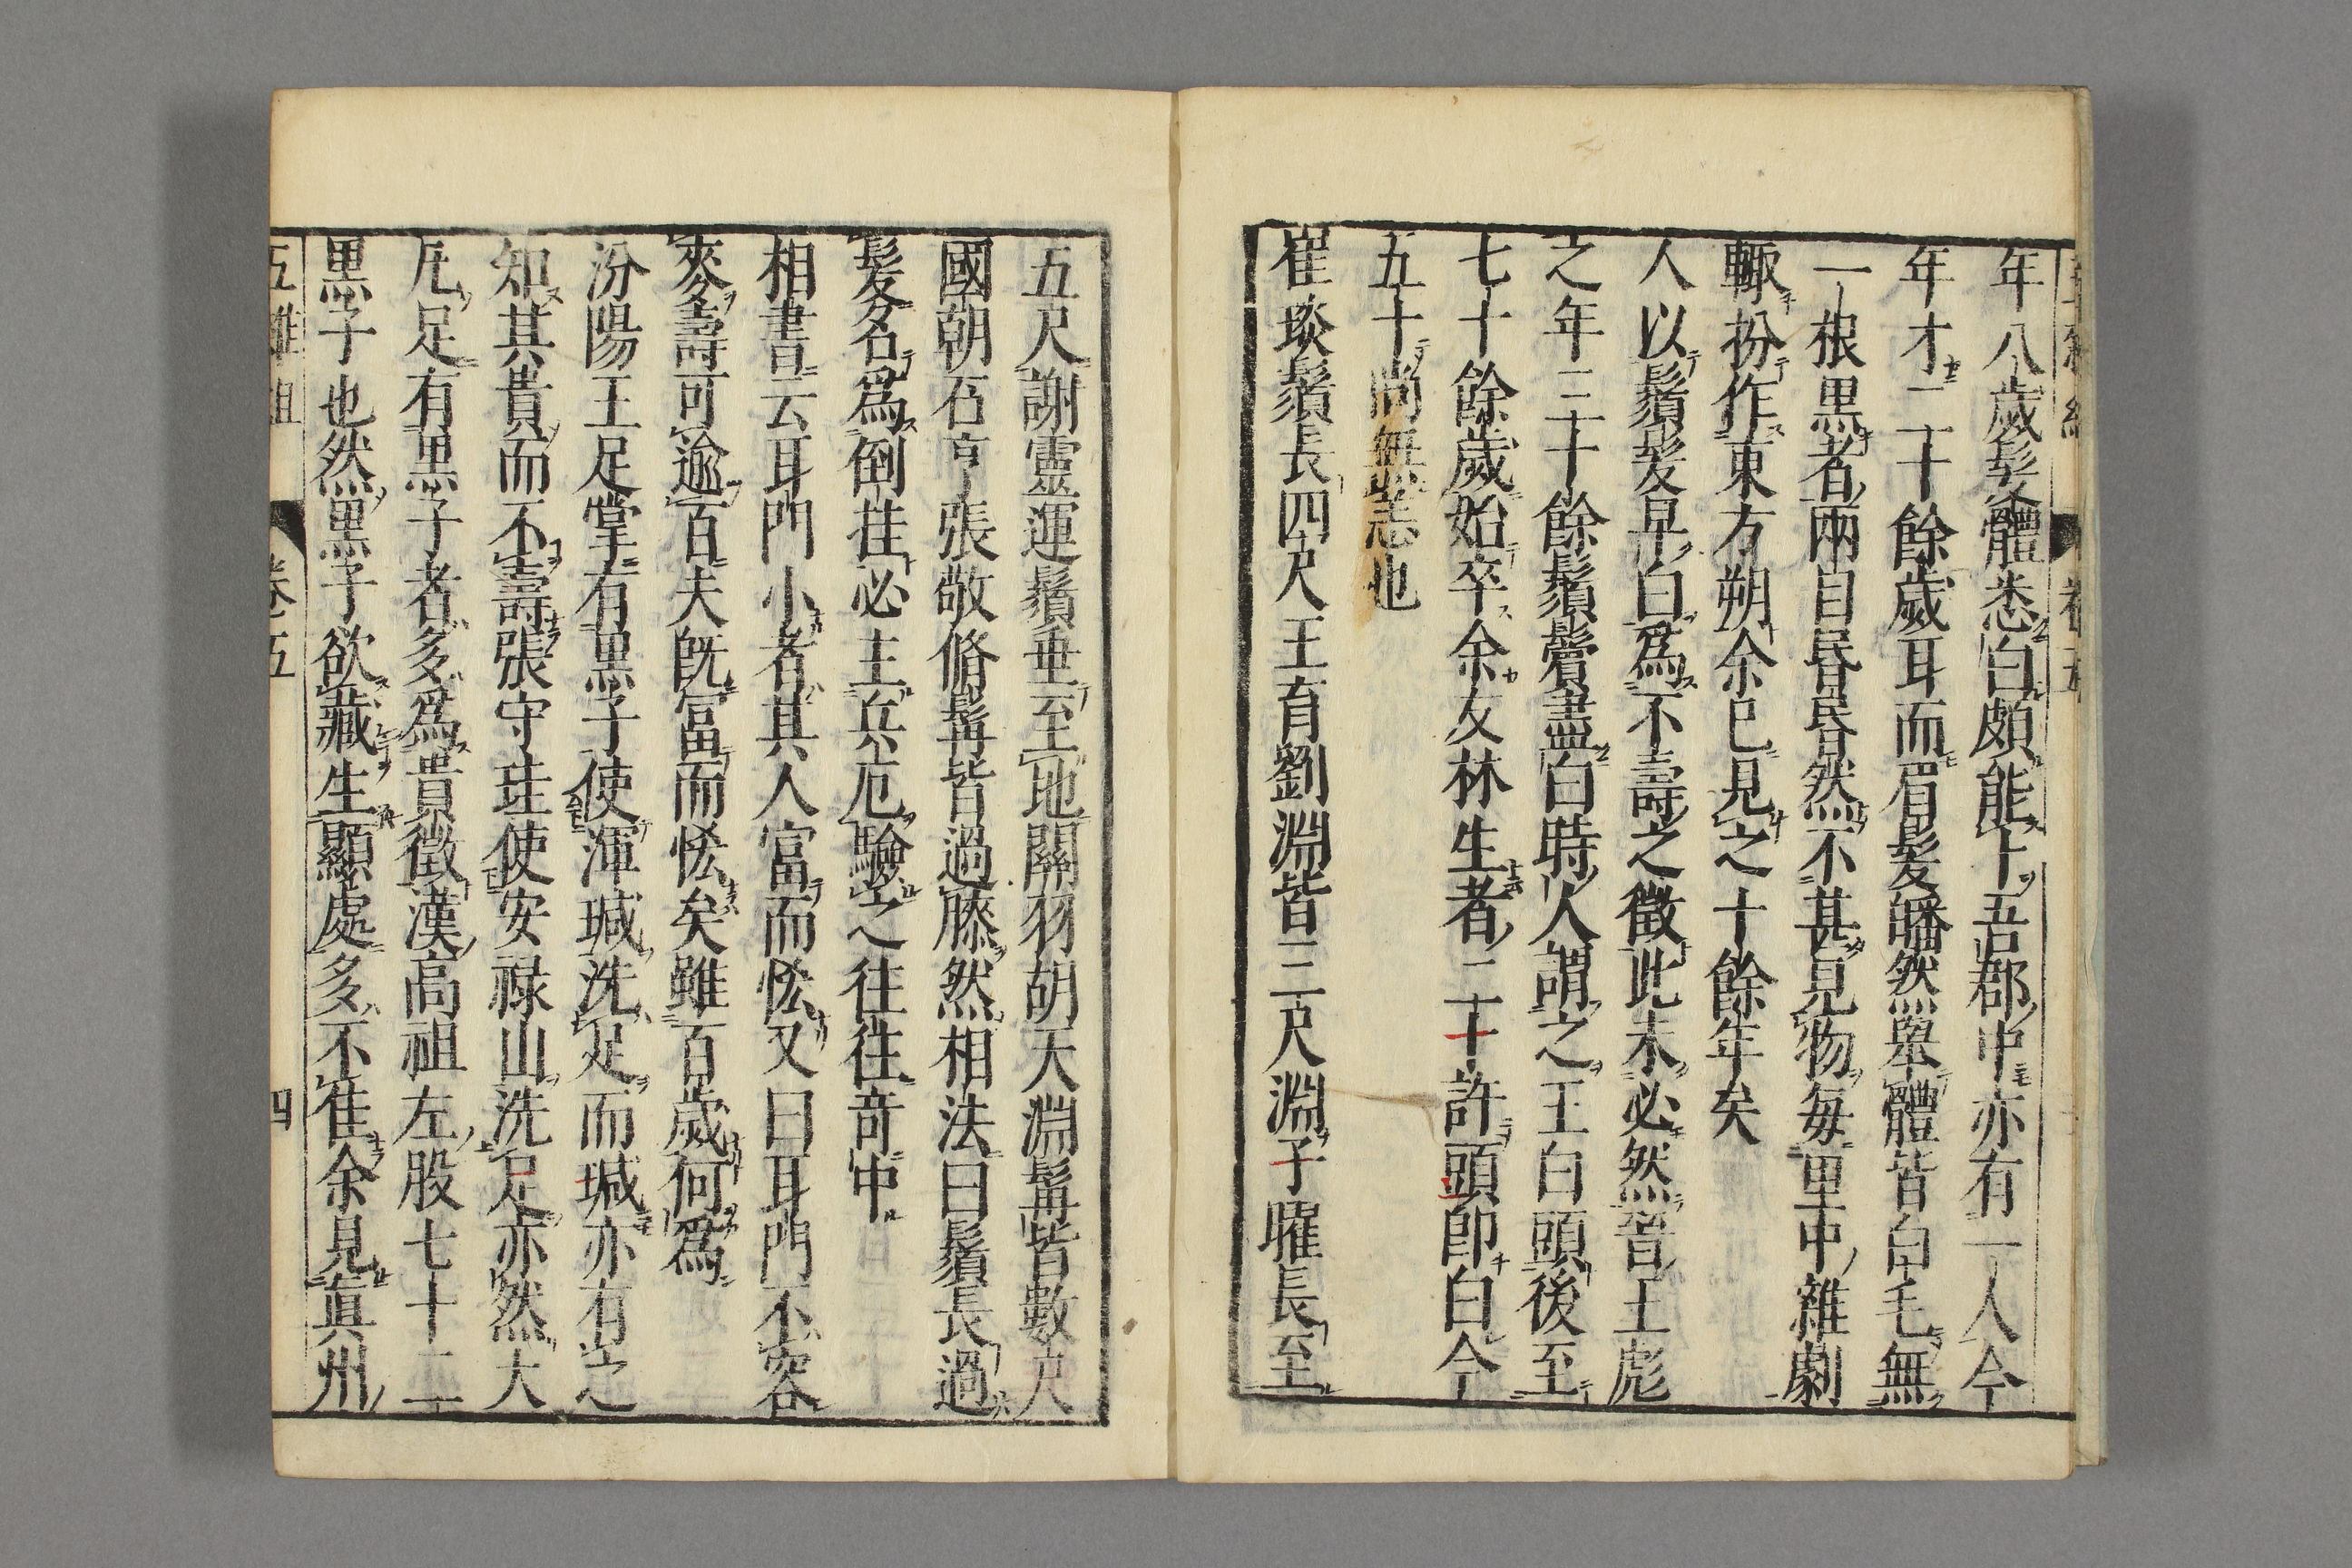 年八歲髮體悉白頗能卜吾郡中亦有一人今
年才二十餘歲耳而眉髮皤然舉體皆白毛無
一根黒者兩目昏昏然不甚見物毎里中雜劇
輙扮作東方朔余巳見之十餘年矣
人以鬚髮早白爲不壽之徵此未必然晉王彪
之年二十餘鬚鬢盡白時人謂之王白頭後至
七十餘歲始卒余友林生者二十許頭即白今
五十尚無恙也
崔琰鬚長四尺王育劉淵皆三尺淵子曜長至
五尺謝靈運鬚垂至地關羽胡天淵髯皆數尺
國朝石亨張敬脩髯皆過膝然相法曰鬚長過
髮名爲倒挂必主兵厄驗之往往竒中
相書云耳門小者其人富而恡又曰耳門不容
麥壽可逾百夫既富而恡矣雖百歲何爲
汾陽王足掌有黒子使渾瑊洗足而瑊亦有之
知其貴而不壽張守珪使安禄山洗足亦然大
凡足有黒子者多爲貴徵漢高祖左股七十二
黒子也然黒子欲藏生顯處多不隹余見眞州
五雜俎
卷五
四